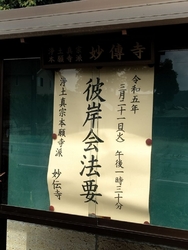 妙傳寺
令和五年
三月二十一日(火) 午後一時三十分
彼岸会法要
浄土真宗本願寺派 妙伝寺